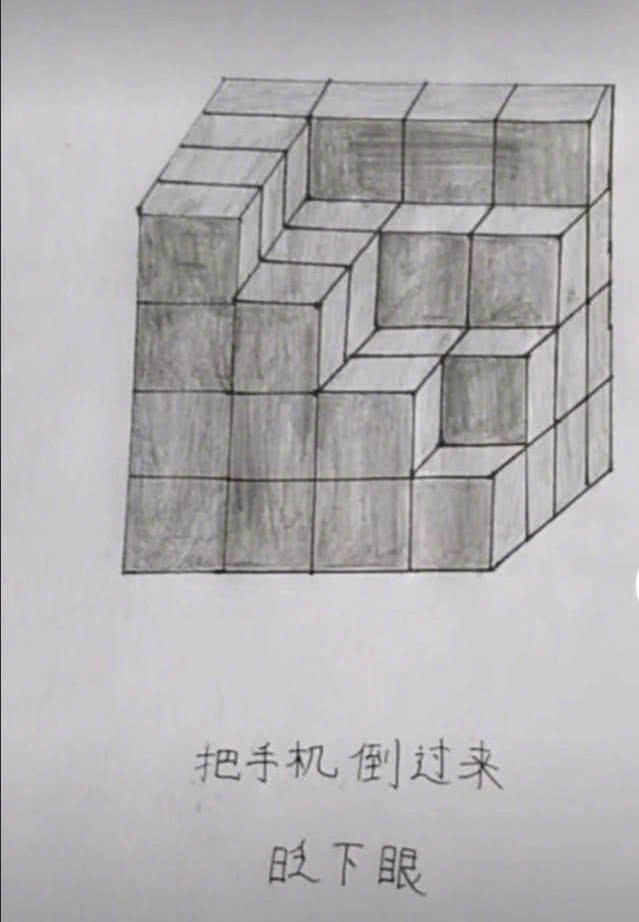 把手机倒过来
眨下眼